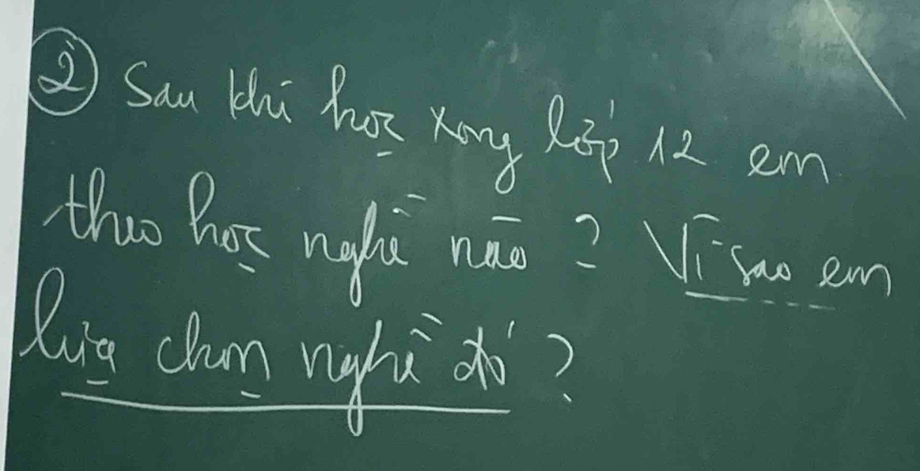 ② Sau khi học xong lớp 12 em
theo học nghề nào ? Vì sao em
lựa chọn nghề đó ?